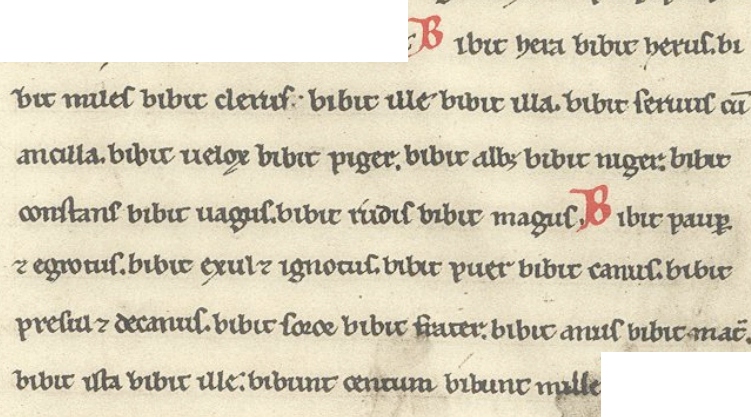 Bibit hera bibit herus. bi
bit miles bibit clerus. bibit ille bibit illa. bibit seruus cū
ancilla. bibit uelox bibit piger. bibit albꝰ bibit niger. bibit
constans bibit uagus. bibit rudis bibit magus. Bibit paupꝑ
⁊ egrotus. bibit exul ⁊ ignotus. bibit puer bibit canus. bibit
presul ⁊ decanus. bibit soror bibit frater. bibit anus bibit mat̄.
bibit ista bibit ille. bibunt centum bibunt mille